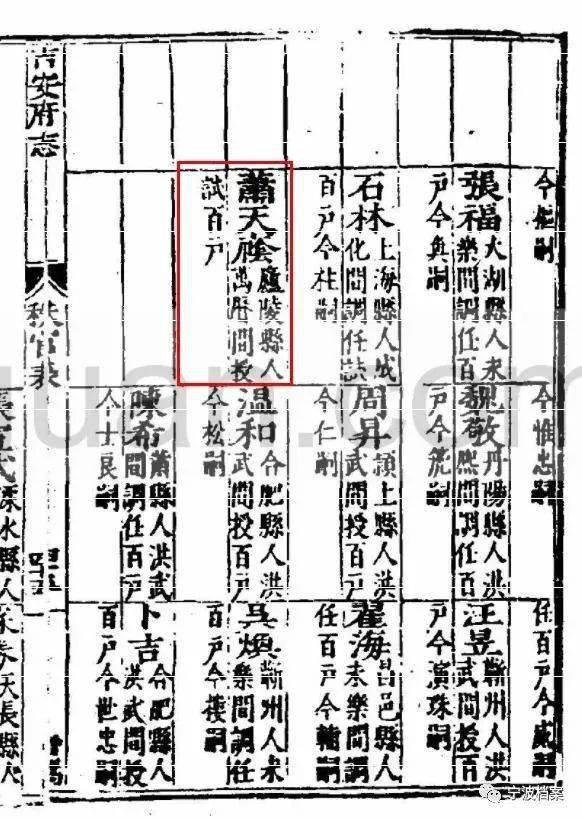 今嗣
張福大湖縣人永
樂間調任百
户今奐嗣
石林上海縣人成
化間調任試
百户今柱嗣
蕭天蔭廬陵縣人
萬曆間授
試百户
今惟忠嗣
魏敬丹陽縣人洪
熙間調任百
户今嗣
周昇潁上縣人洪
武間授百户
今仁嗣
温和合肥縣人洪
武間授百户
今松嗣
陳希蕭縣人洪武
間調任百户
今士良嗣
任百户今嗣
汪昱蘄州人洪
武間授百
户今演珠嗣
翟海昌邑縣人
永樂間調
任百户今輔嗣
吳蘄州人永
樂間調任
百户今嗣
卜吉合肥縣人
洪武間授
百户今世忠嗣
吉安府志
秩官表
溧水縣人
天長縣人
guan.com
宁波档案